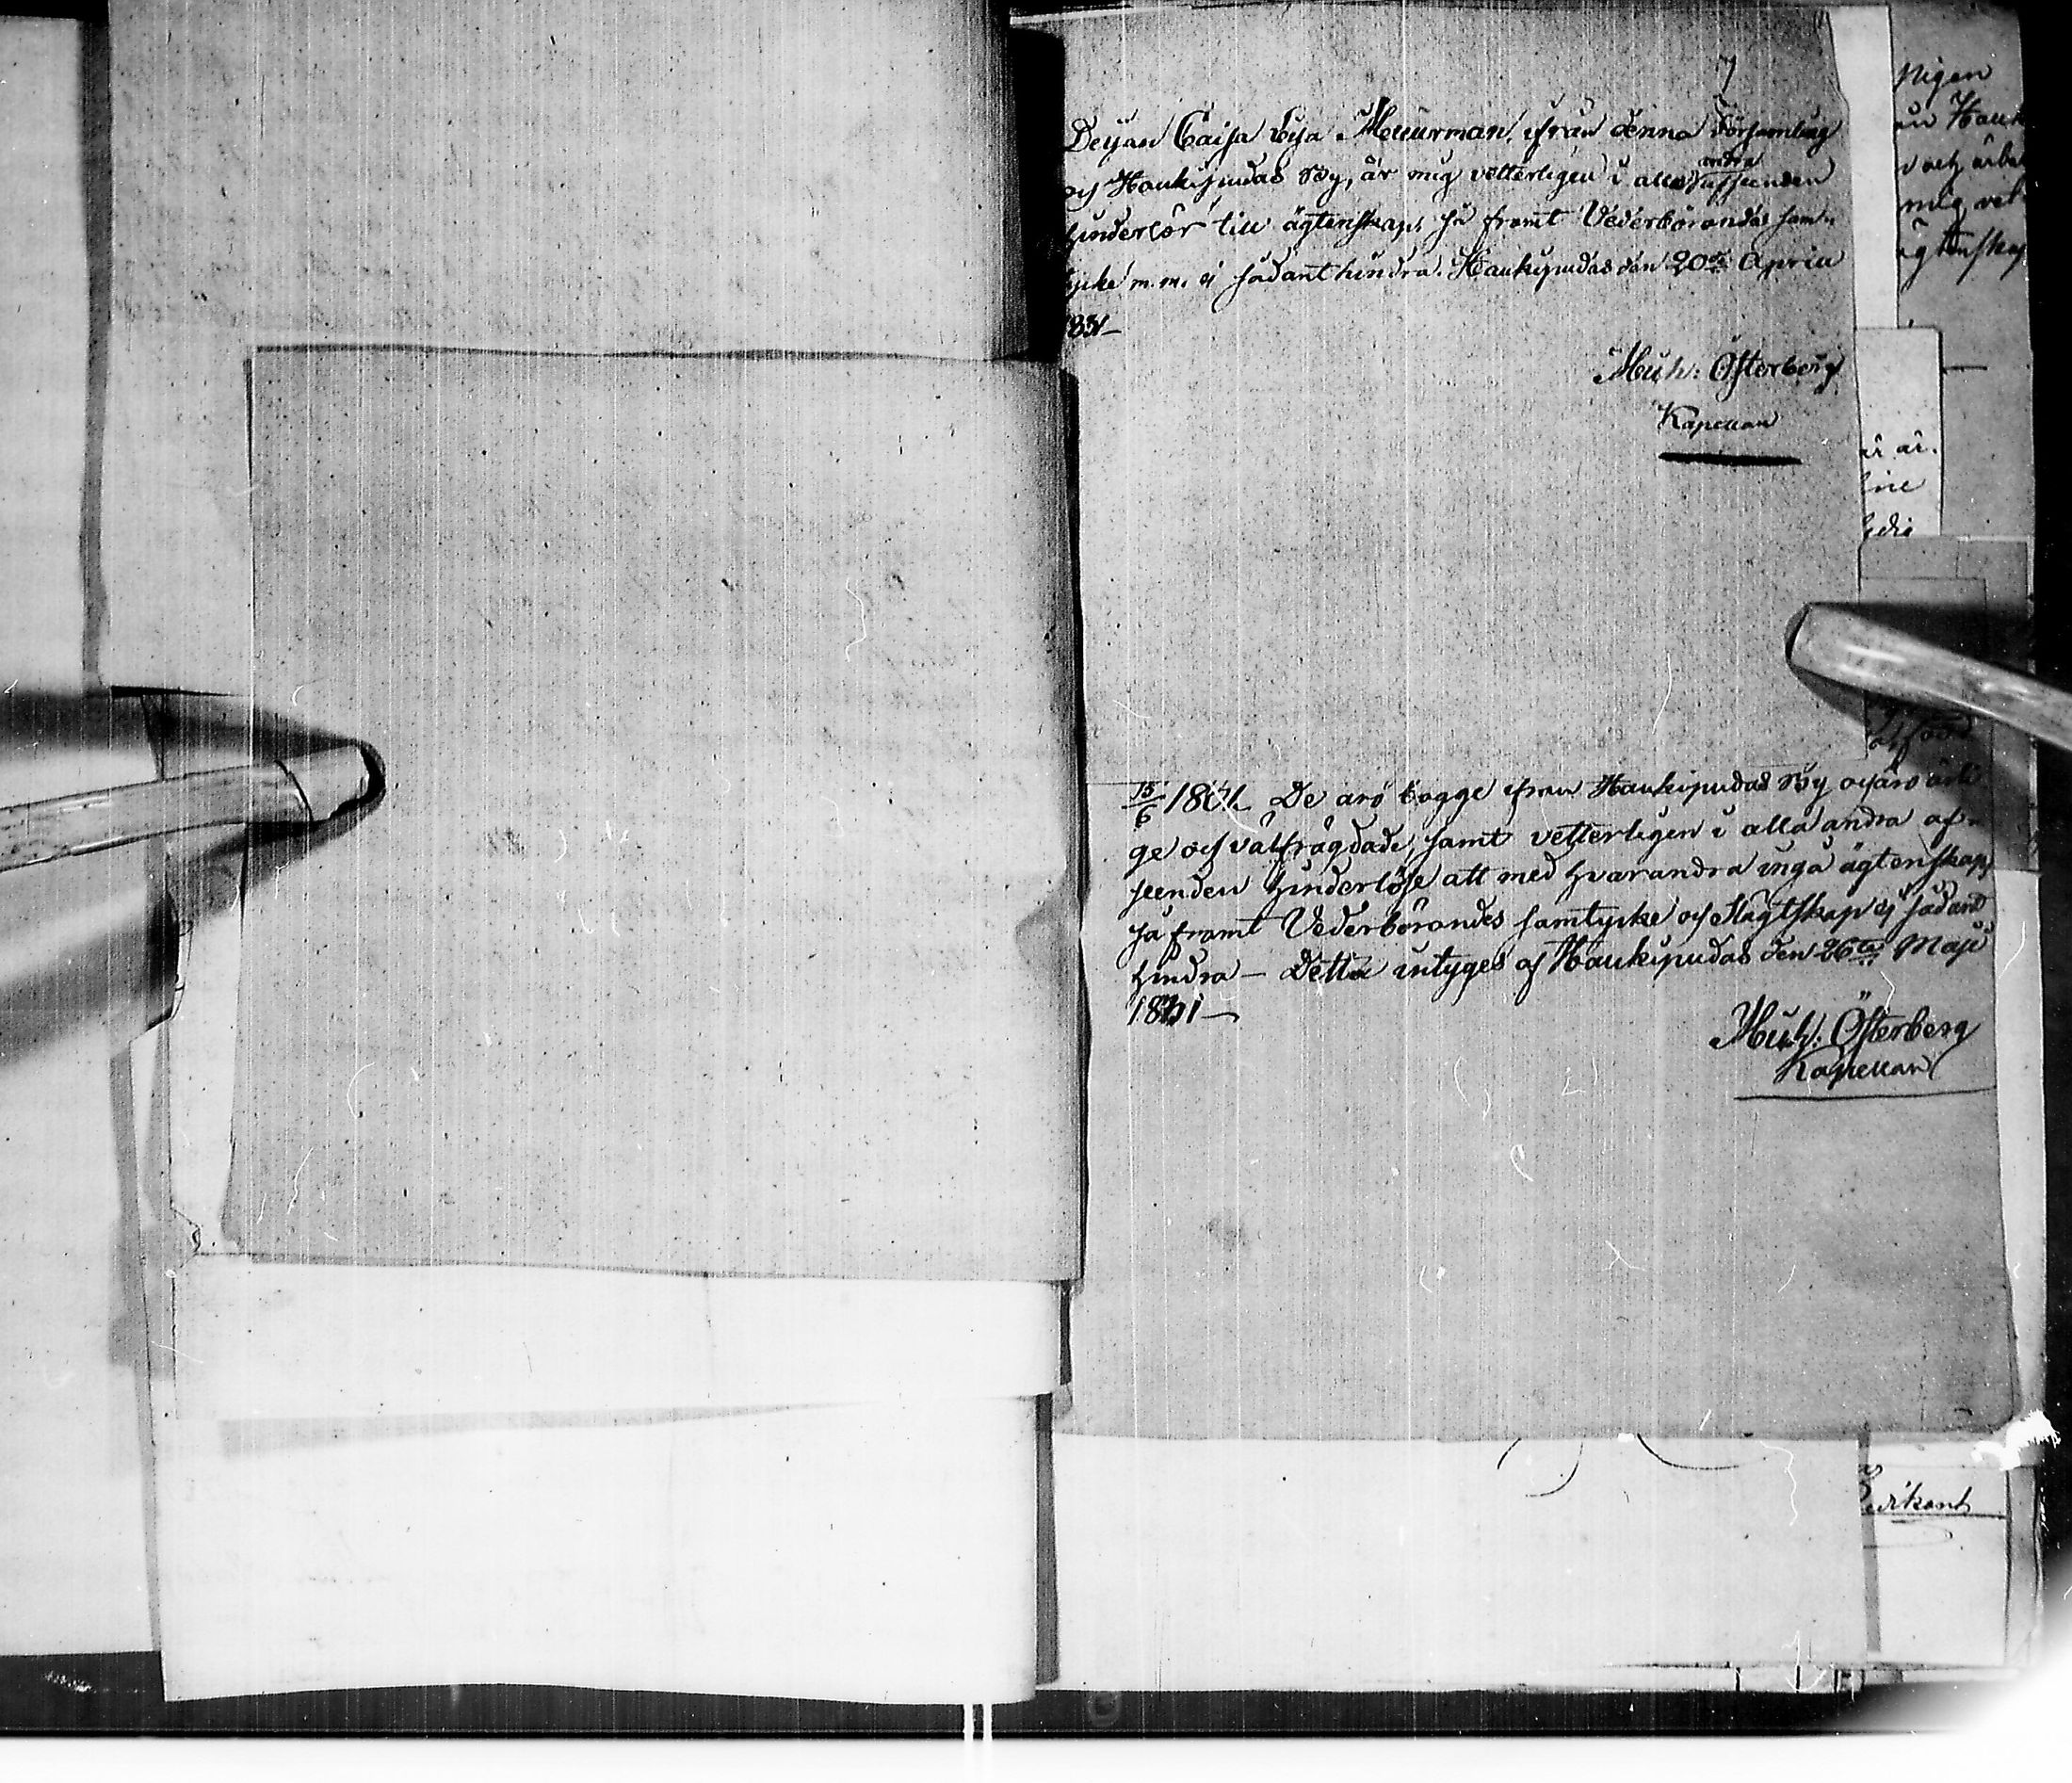 7
Deijan Caisa Lisa Meuurman, ifrån denna Församling
och Haukipudas By, är mig vetterligen i alla andra afseenden
hinderlös till ägtenskap, så framt Vederbörandes sam-
tycke m.m. ej sådant hindra. Haukipudas den 20de April
1831-
Mich: Österberg
Kapellan
15/6 1831. De äro bägge ifrån Haukipudas By och äro ärli-
ge och välfrägdade, samt vetterligen i alla andra af-
seenden hinderlöse att med hvarandra ingå ägtenskap,
så framt Vederbörandes samtycke och Slägtskap ej sådant
hindra - Detta intygas af Haukipudas den 26te Maji
1831-
Mich: Österberg
Kapellan
Pigen
mig vet
ägtenskap
är är.